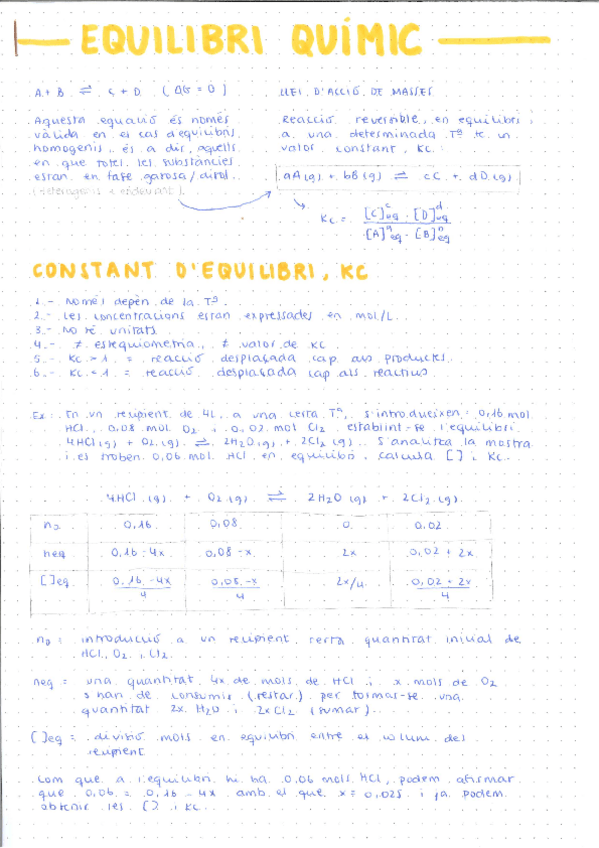 EQUILIBRI QUÍMIC
A + B ⇌ C + D (ΔG = 0)
Aquesta equació és només
vàlida en el cas d'equilibris
homogenis, és a dir, aquells
en que totes les substàncies
estan en fase gasosa/dissol.
(Heterogenis + endavant).
LLEI D'ACCIÓ DE MASSES
Reacció reversible, en equilibri i
a una determinada Tª té un
valor constant, Kc.
aA(g) + bB(g) ⇌ cC + dD(g)
Kc = [C]ᶜeq · [D]ᵈeq / [A]ᵃeq · [B]ᵇeq
CONSTANT D'EQUILIBRI, KC
1.- Només depèn de la Tª.
2.- Les concentracions estan expressades en mol/L.
3.- No té unitats.
4.- ≠ estequiometria, ≠ valor de Kc
5.- Kc > 1 = reacció desplaçada cap als productes.
6.- Kc < 1 = reacció desplaçada cap als reactius
Ex: En un recipient de 4L, a una certa Tª, s'introdueixen: 0,16 mol
HCl, 0,08 mol O₂ i 0,02 mol Cl₂ establint-se l'equilibri.
4HCl(g) + O₂(g) ⇌ 2H₂O(g) + 2Cl₂(g). S'analitza la mostra
i es troben 0,06 mol HCl en equilibri. Calcula [] i Kc.
4HCl(g) + O₂(g) ⇌ 2H₂O(g) + 2Cl₂(g)
n₀ 0,16 0,08 0 0,02
neq 0,16-4x 0,08-x 2x 0,02+2x
[]eq 0,16-4x/4 0,08-x/4 2x/4 0,02+2x/4
n₀: introducció a un recipient certa quantitat inicial de
HCl, O₂ i Cl₂.
neq = una quantitat 4x de mols de HCl i x mols de O₂
s'han de consumir (restar) per formar-se una
quantitat 2x H₂O i 2xCl₂ (sumar).
[]eq = divisió mols en equilibri entre el volum del
recipient
Com que a l'equilibri hi ha 0,06 mols HCl, podem afirmar
que 0,06 = 0,16 - 4x amb el que x = 0,025 i ja podem
obtenir les [] i Kc.